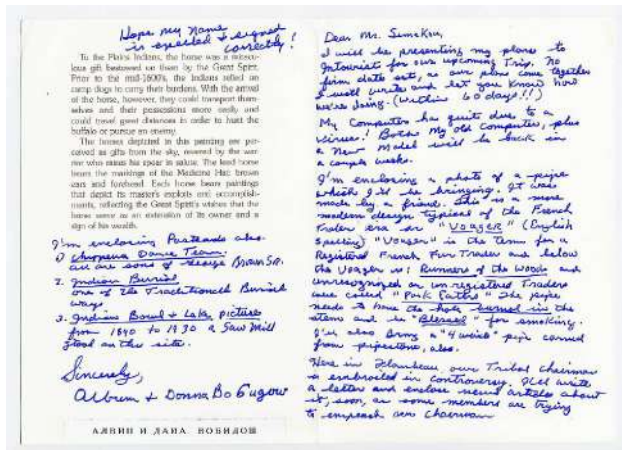 Hope my name
is spelled & signed
correctly!
To the Plains Indians, the horse was a miracu-
lous gift bestowed on them by the Great Spirit.
Prior to the mid-1600's, the Indians relied on
camp dogs to carry their burdens. With the arrival
of the horse, however, they could transport them-
selves and their possessions more easily and
could travel great distances in order to hunt the
buffalo or pursue an enemy.
The horses depicted in this painting are per-
ceived as gifts from the sky, revered by the war-
rior who raises his spear in salute. The lead horse
bears the markings of the Medicine Hat: brown
ears and forehead. Each horse bears paintings
that depict its master's exploits and accomplish-
ments, reflecting the Great Spirit's wishes that the
horse serve as an extension of its owner and a
sign of his wealth.
I'm enclosing Postcards also.
1 Dance Team:
all are sons of George Brown Sr.
2. Indian Burial
one of the Traditional Burial
ways
3. Indian Bowl & Lake picture
from 1890 to 1930 a Saw Mill
stood on the site.
Sincerely,
& Donna
АЛВИН И ДАНА ВОБИДОШ
Dear Mr.
I will be presenting my plans to
Intourist for our upcoming Trip. No
firm date set, as our plans come together
I will write and let you know how
we're doing. (within 60 days!!)
My Computer has quit due to a
Virus! Both my old computer, plus
a New Model will be back in
a couple weeks.
I'm enclosing a photo of a pipe
which I'll be bringing. It was
made by a friend. This is a more
modern design typical of the French
Traders era or "Voager" (English
spelling) "Voager" is the term for a
Registered French Fur Trader and below
the Voager is: Runners of the Woods and
unrecognized or un-registered Traders
were called "Pork Eaters" The pipe
needs to have the hole burned in the
stem and is "Blessed" for smoking.
I'll also bring a "4 winds" pipe carved
from pipestone, also.
Here in Flambeau, our Tribal Chairman
is embroiled in controversy. I'll write
a letter and enclose news articles about
it, soon, as some members are trying
to empeach our Chairman